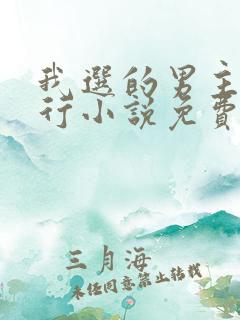 我選的男主
行小說免費
三月海
未经同意禁止转载